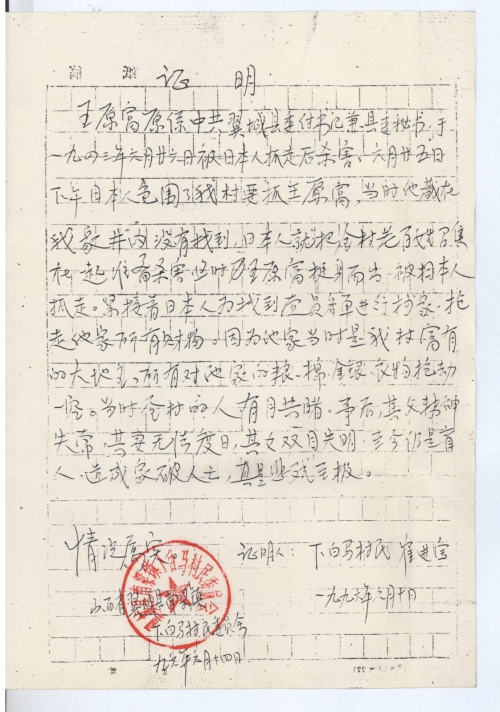 证 明
王原富原係中共翼城县委付书记兼县委秘书,于
一九四三年六月廿六日被日本人抓走后杀害。六月廿五日
下午日本人包围了我村要抓王原富,当时他藏在
我家井内没有找到,日本人就把全村老百姓召集
在一起准备杀害,这时王原富挺身而出,被日本人
抓走。紧接着日本人为找到党员名单进行抄家,抢
走他家所有财物。因为他家当时是我村富有
的大地主,所有对他家的粮、棉、金银、衣物抢劫
一空。当时全村的人有目共睹。事后,其父精神
失常,其妻无法度日,其女双目失明,至今仍是盲
人,造成家破人亡,真是悲惨至极。
情况属实 证明人:下白马村民 崔进宝
山西省翼城县 一九九六年 月十日
下白马村民委员会
九六年六月十四日